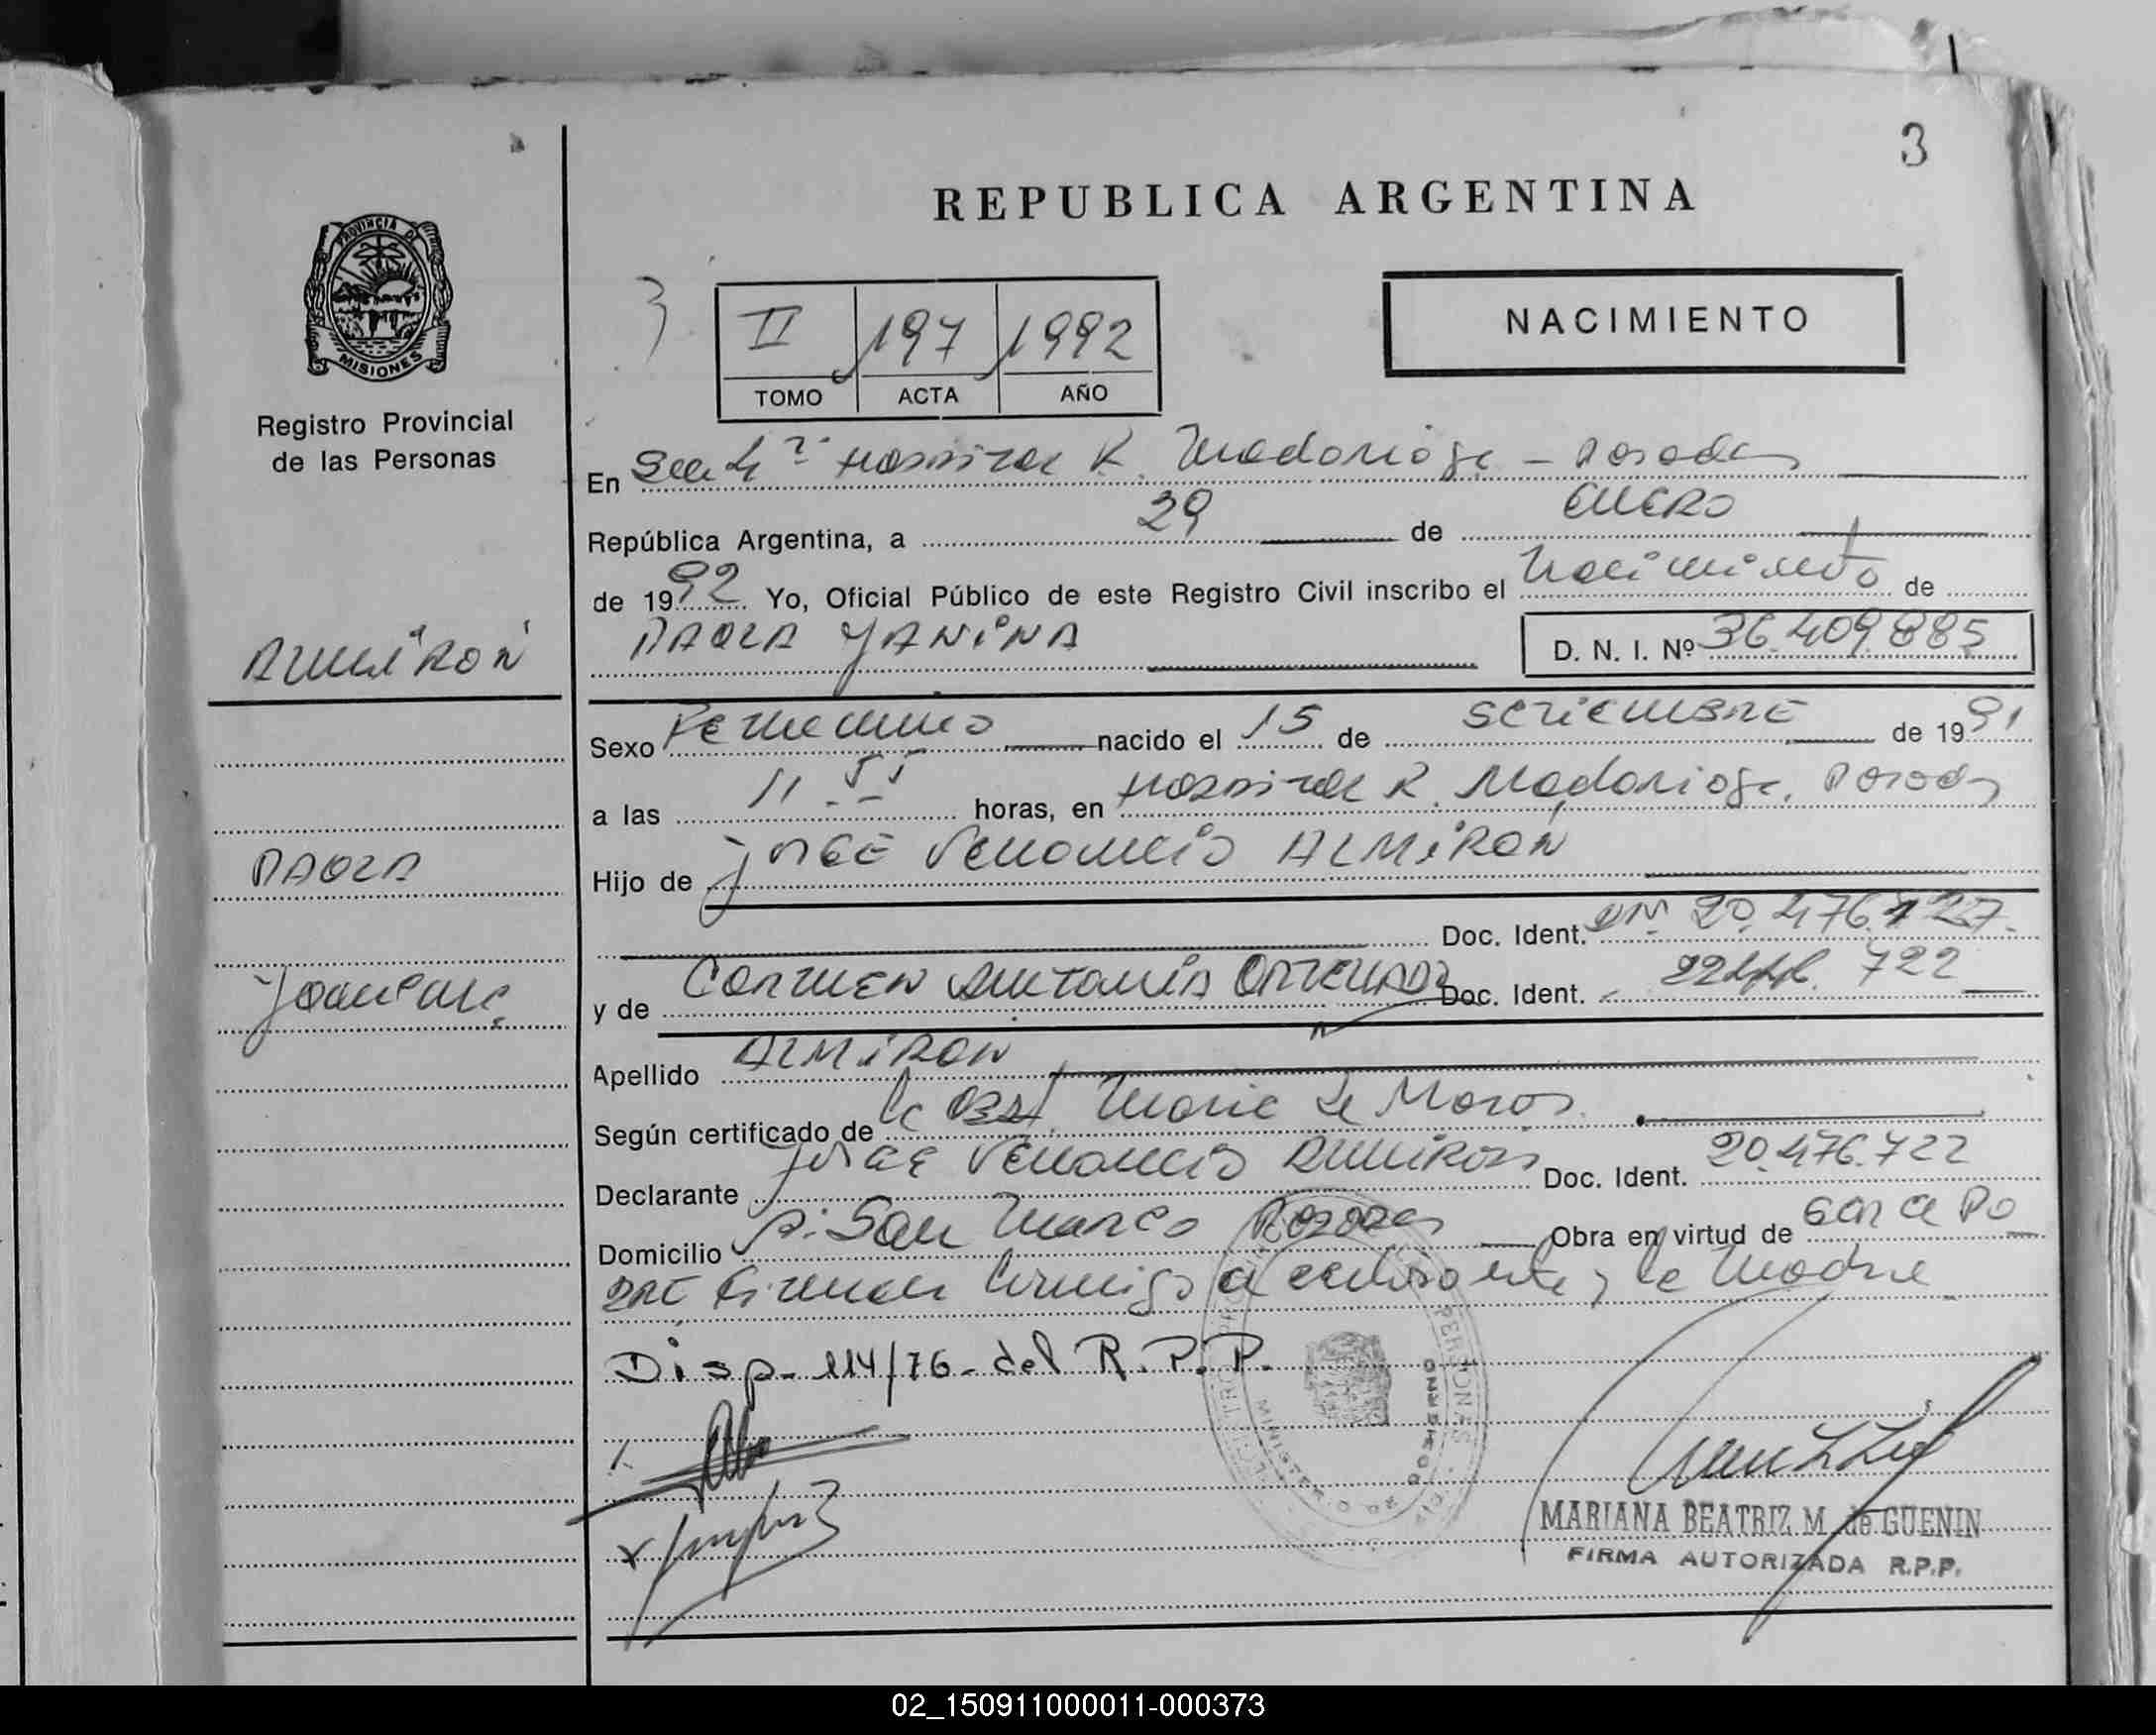 3
REPUBLICA ARGENTINA
PROVINCIA DE
MISIONES
Registro Provincial
de las Personas
3
II 197 1992
TOMO ACTA AÑO
NACIMIENTO
En Hospital R. Madariaga - Posadas
República Argentina, a 29 de ENERO
de 1992 Yo, Oficial Público de este Registro Civil inscribo el Nacimiento de
PAOLA YANINA D. N. I. Nº 36.409.885
ALMIRON
Sexo Femenino nacido el 15 de SETIEMBRE de 1991
a las 11.55 horas, en Hospital R. Madariaga. Posadas
PAOLA
Hijo de JORGE Venancio ALMIRON
Doc. Ident. 20.476.727.
y de CARMEN ANTONIA Doc. Ident. 722
Apellido ALMIRON
Según certificado de la Obst. Maria de
Declarante JORGE Venancio ALMIRON Doc. Ident. 20.476.722
Domicilio San Marco Posadas Obra en virtud de ser el PA
DRE Firman conmigo el declarante y la Madre
Disp. 114/76 - del R.P.P.
MINISTERIO DE GOBIERNO
MARIANA BEATRIZ M. de GUENIN
FIRMA AUTORIZADA R.P.P.
02_150911000011-000373